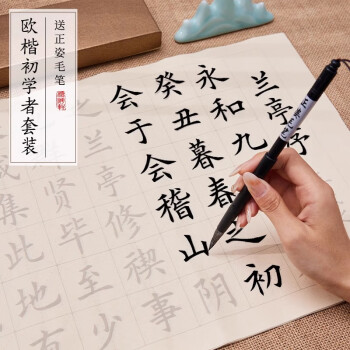 送正姿毛笔
欧楷初学者套装
兰亭序
永和九
癸丑暮春之初
会于会稽山阴
兰亭修禊事
贤毕至少
集此地有